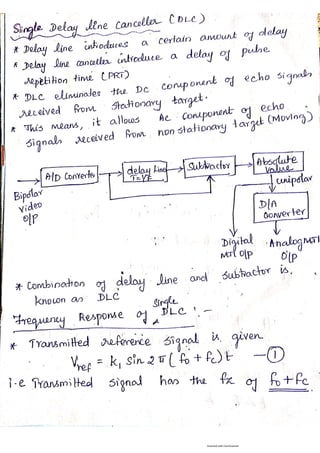 Single Delay line Canceller (DLC)
* Delay line introduces a certain amount of delay
* Delay line canceller introduce a delay of pulse
repetition time (PRT)
* DLC eliminates the DC component of echo signals
received from stationary target.
* This means, it allows AC component of echo
signals received from non stationary target (Moving)
A/D Converter
delay line
Subtractor
Absolute
value
Bipolar
video
O/P
unipolar
D/A
Converter
Digital
MTI O/P
Analog MTI
O/P
* Combination of delay line and subtractor is,
known as DLC
Frequency Response of Single DLC :-
* Transmitted reference signal is given
Vref = k₁ sin 2π (fo + fc) t —①
i.e Transmitted signal has the fx of fo+fc